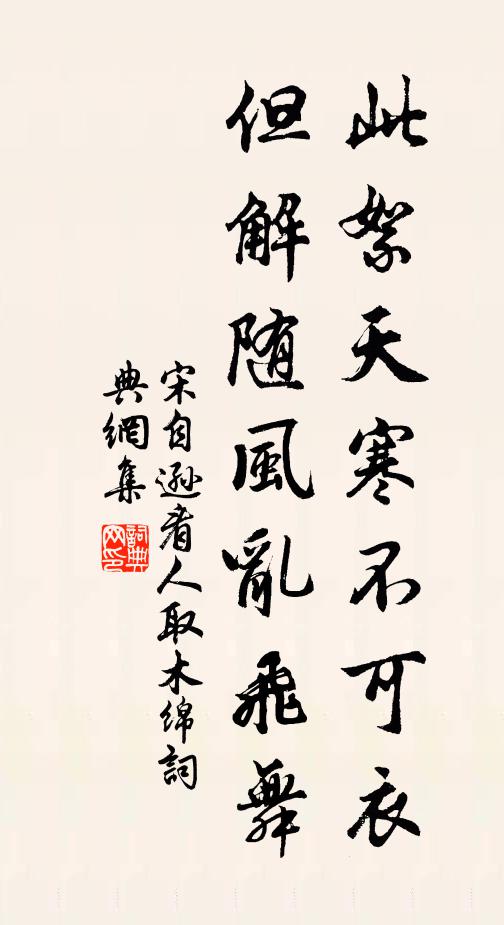 此絮天寒不可衣
但解随風亂飛舞
宋自遜看人取木綿詞
典網集
詞典網印